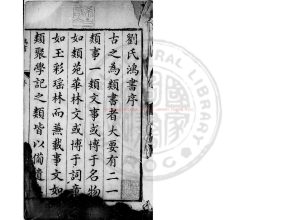 劉氏鴻書序
古之為類書者大要有二一
類事一類文事或博于名物
如類苑華林文或博于詞章
如玉彩瑤林而兼載事文如
類聚學記之類皆以備遺
RAL LIBRARY